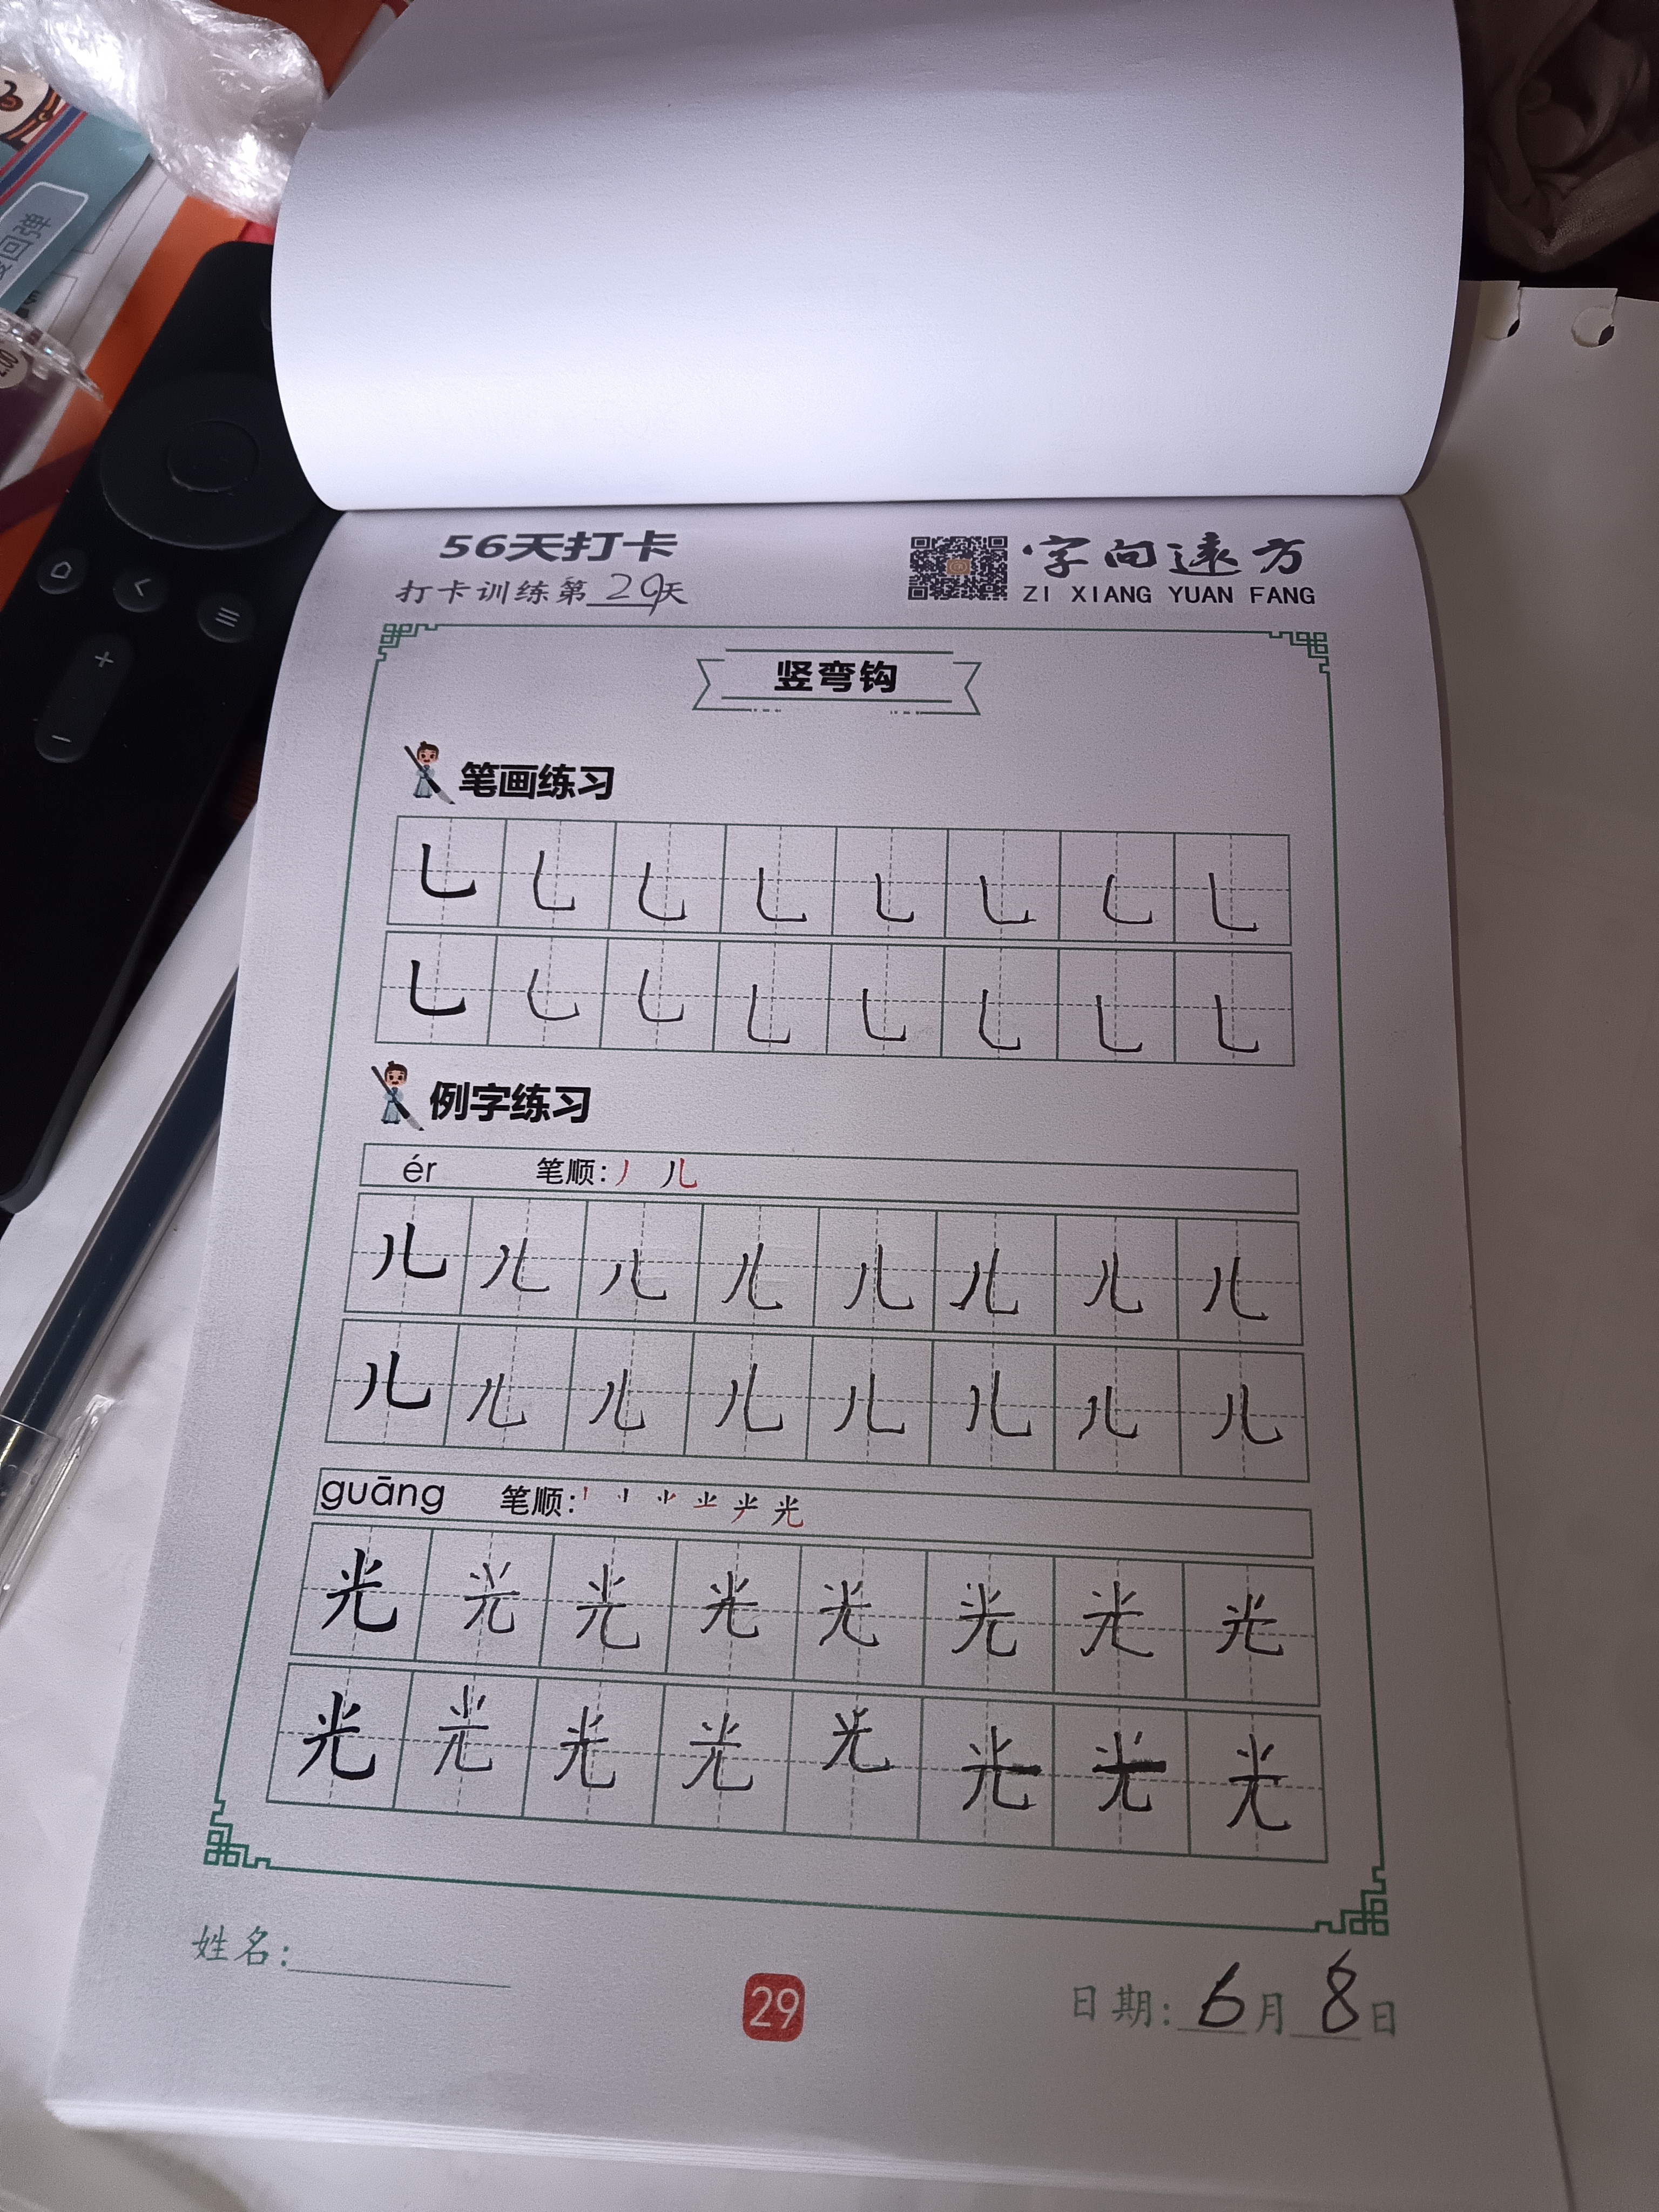 回弹
56天打卡
打卡训练第29天
字向远方
ZI XIANG YUAN FANG
竖弯钩
笔画练习
乚 乚 乚 乚 乚 乚 乚 乚
乚 乚 乚 乚 乚 乚 乚 乚
例字练习
ér 笔顺: 丿 儿
儿 儿 儿 儿 儿 儿 儿 儿
儿 儿 儿 儿 儿 儿 儿 儿
guāng 笔顺:
光 光 光 光 光 光 光 光
光 光 光 光 光 光 光 光
姓名:
29
日期: 6月8日